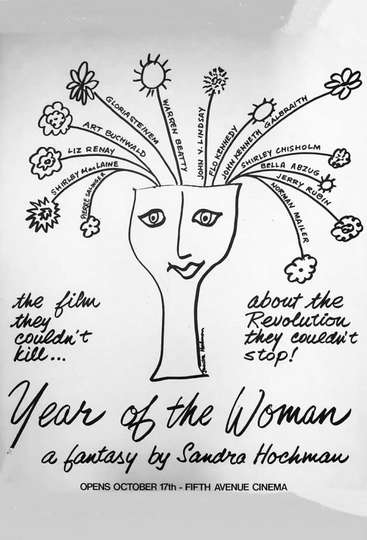 GLORIA STEINEM
WARREN BEATTY
JOHN V. LINDSAY
FLO KENNEDY
JOHN KENNETH GALBRAITH
ART BUCHWALD
SHIRLEY CHISHOLM
LIZ RENAY
BELLA ABZUG
SHIRLEY MacLAINE
JERRY RUBIN
PIERRE SALINGER
NORMAN MAILER
the film
they
couldn't
kill...
about the
Revolution
they couldn't
stop!
Year of the Woman
a fantasy by Sandra Hochman
OPENS OCTOBER 17th - FIFTH AVENUE CINEMA